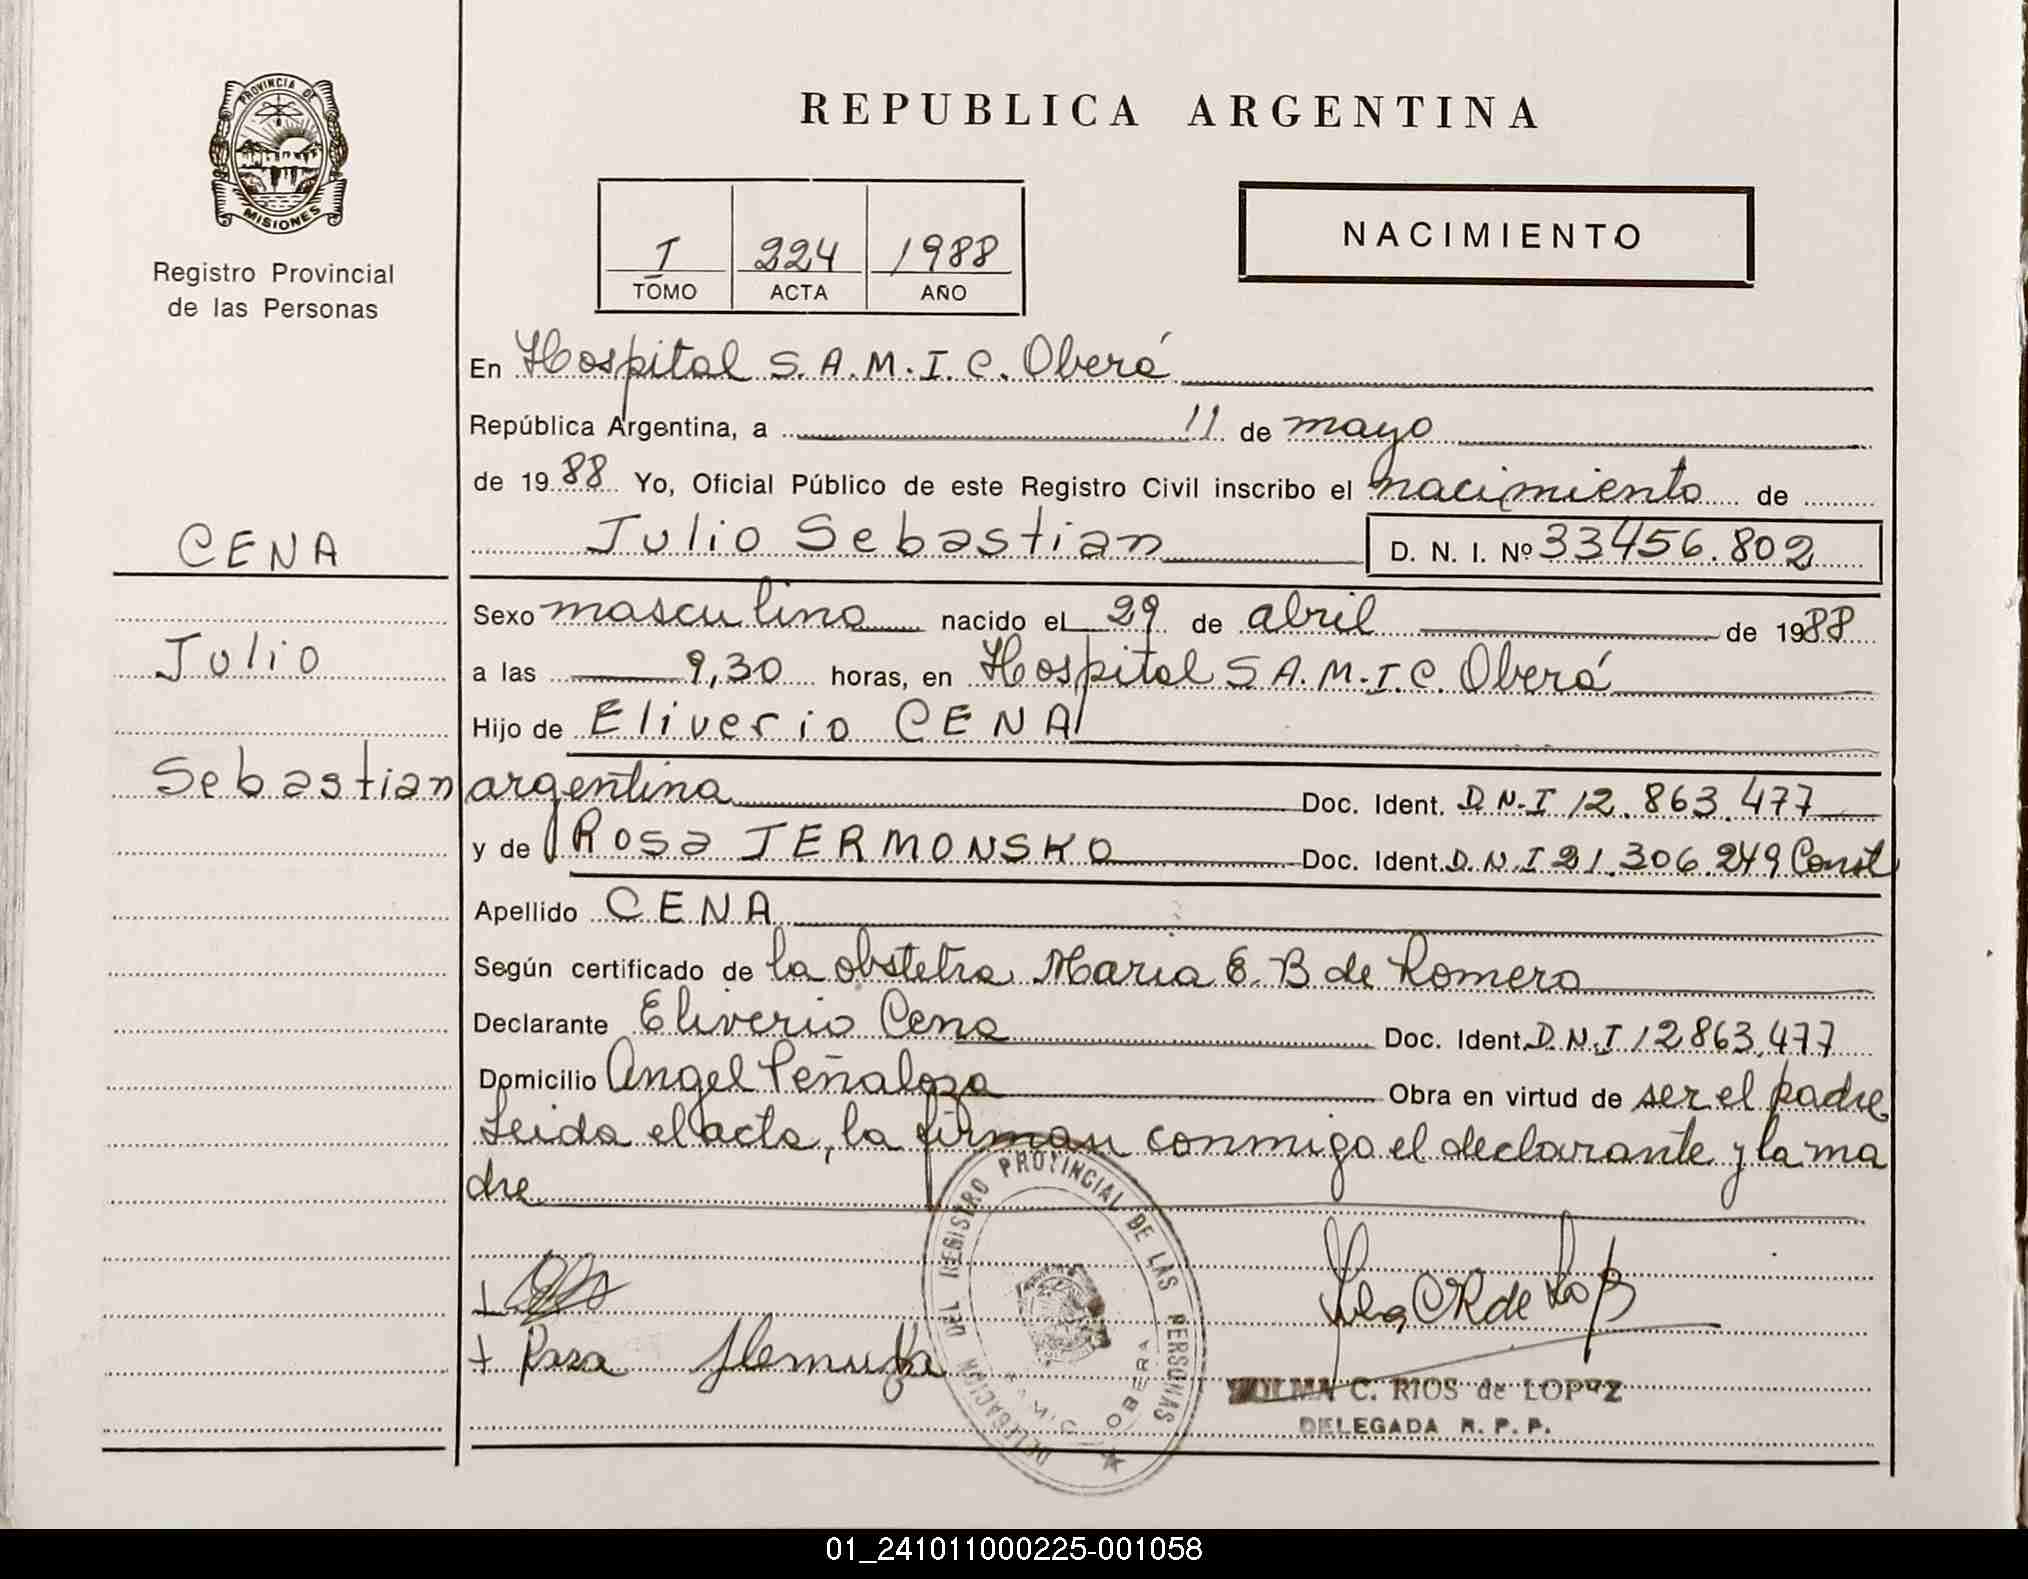 PROVINCIA DE
MISIONES
Registro Provincial
de las Personas
REPUBLICA ARGENTINA
NACIMIENTO
1 224 1988
TOMO ACTA AÑO
En Hospital S.A.M.I.C. Oberá
República Argentina, a 11 de mayo
de 1988 Yo, Oficial Público de este Registro Civil inscribo el nacimiento de
Julio Sebastian D. N. I. Nº 33456.802
CENA
Julio
Sebastian
Sexo masculino nacido el 29 de abril de 1988
a las 9,30 horas, en Hospital S A.M.I.C. Oberá
Hijo de Eliverio CENA
argentina Doc. Ident. D.N.I 12.863.477
y de Rosa JERMONSKO Doc. Ident. D.N.I 21.306.249 Const
Apellido CENA
Según certificado de la obstetra Maria E. B de Romero
Declarante Eliverio Cena Doc. Ident. D.N.I 12863.477
Domicilio Angel Peñaloza Obra en virtud de ser el padre
Leida el acta, la firman conmigo el declarante y la ma
dre
DELEGACION DEL REGISTRO PROVINCIAL DE LAS PERSONAS
SAMIC OBERA
C. RIOS de LOPEZ
DELEGADA R. P. P.
01_241011000225-001058